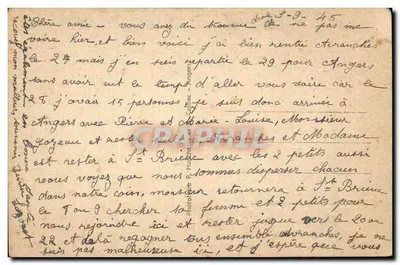 le 3-9-45
Chère amie - vous avez du trouver de ne pas me
voire hier, et bien voici j'ai bien rentré Avranches
le 27 mais j'en suis repartie le 29 pour Angers
sans avoir eut le temps d'aller vous voire car le
28 j'avais 15 personnes je suis donc arrivée à
Angers avec Pierre et Marie-Louise, Monsieur
et Avranches et Madame
est rester à St Brieuc avec les 2 petits aussi
vous voyez que nous sommes disperser chacun
dans notre coin, monsieur retournera à St Brieuc
le 8 ou 9 chercher sa femme et 2 petits pour
nous rejoindre ici et rester jusque vers le 20 ou
22 et de là regagner tous ensemble Avranches, je ne
suis pas malheureuse ici, et j'espère que vous
êtes également en bonne
recevez mes meilleurs
CPARAMA